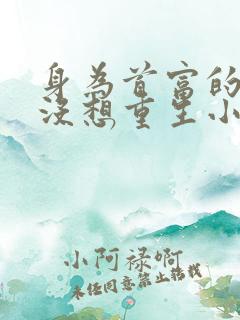 身为首富的
没想重生小
小阿禄啊
未经同意禁止转载